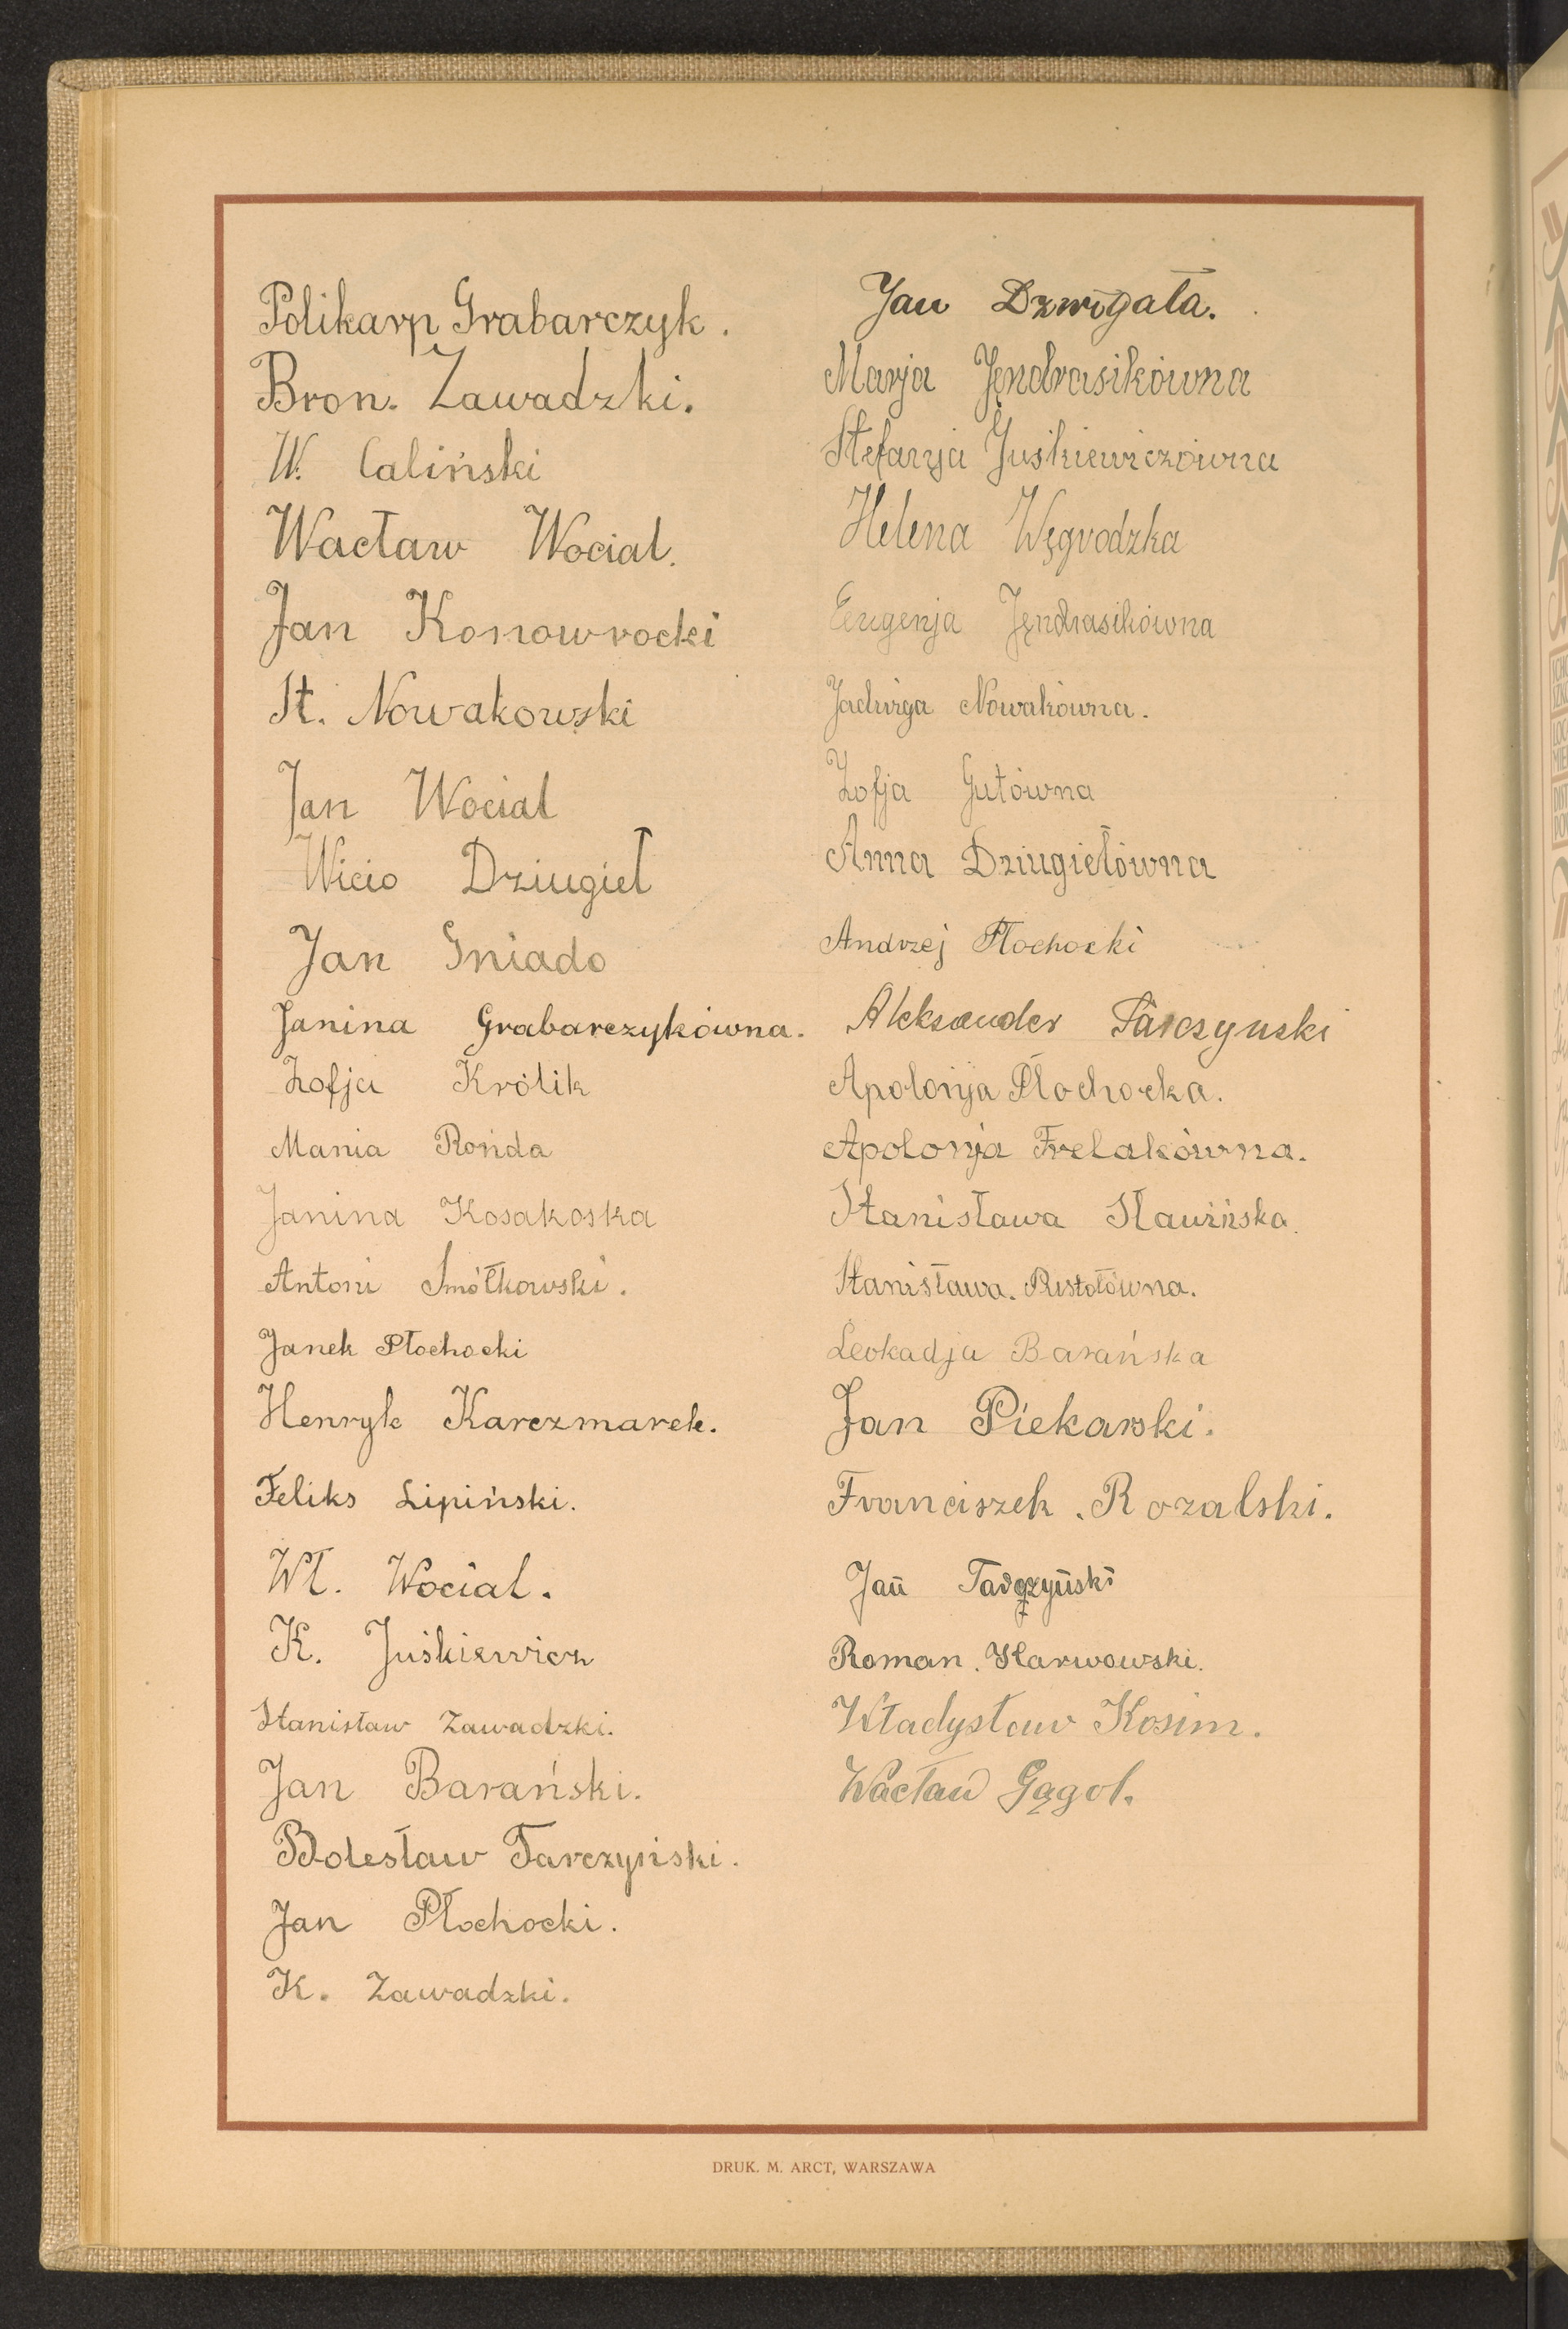 Polikarp Grabarczyk.
Bron. Zawadzki.
W. Caliński
Wacław Wocial.
Jan Konowrocki
St. Nowakowski
Jan Wocial
Wicio Dziugieł
Jan Gniado
Janina Grabarczykówna.
Zofja Królik
Mania Rońda
Janina Kosakoska
Antoni Smółkowski.
Janek Płochocki
Henryk Karczmarek.
Feliks Lipiński.
Wł. Wocial.
K. Juśkiewicz
Stanisław Zawadzki.
Jan Barański.
Bolesław Tarczyński.
Jan Płochocki.
K. Zawadzki.
Jan Dzwigała.
Marja Jęndrasikówna
Stefanja Juśkiewiczówna
Helena Węgrodzka
Eugenja Jęndrasikówna
Jadwiga Nowakówna.
Zofja Gutówna
Anna Dziugiełówna
Andrzej Płochocki
Aleksander Tarczynski
Apolonja Płochocka.
Apolonja Frelakówna.
Stanisława Sławińska.
Stanisława. Pustołówna.
Leokadja Barańska
Jan Piekarski.
Franciszek. Rozalski.
Jan Tarczyński
Roman. Karwowski.
Władysław Kosim.
Wacław Gągol.
DRUK. M. ARCT, WARSZAWA